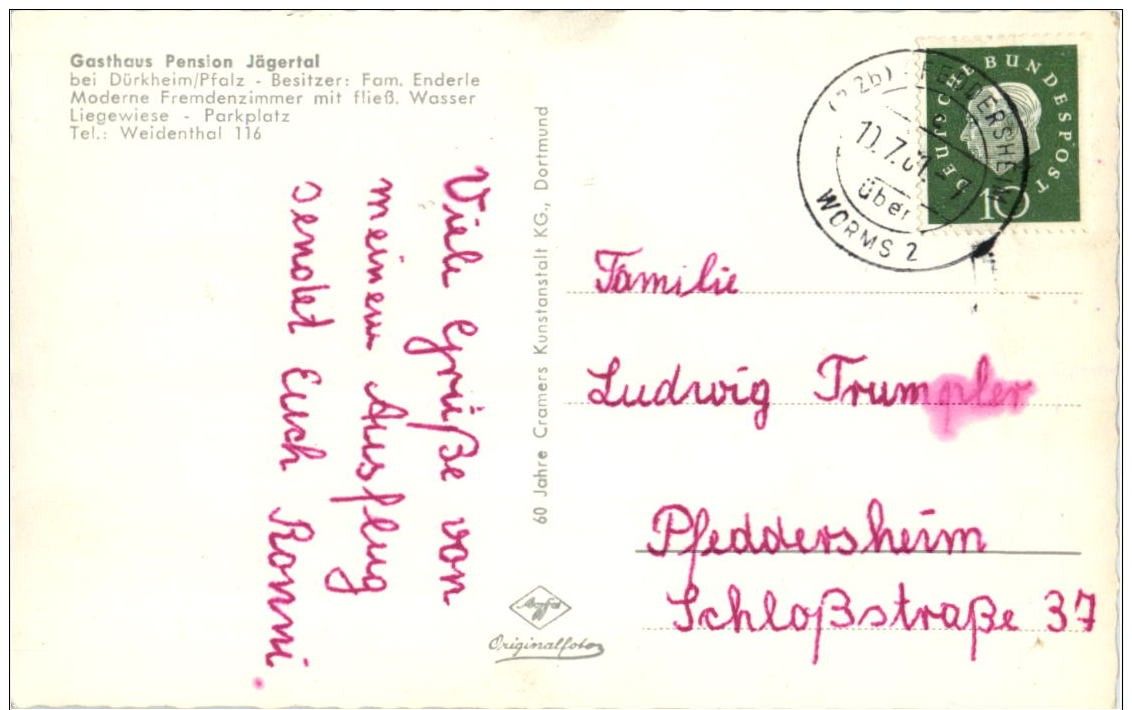 Gasthaus Pension Jägertal
bei Dürkheim/Pfalz - Besitzer: Fam. Enderle
Moderne Fremdenzimmer mit fließ. Wasser
Liegewiese - Parkplatz
Tel.: Weidenthal 116
Viele Grüße von
meinem Ausflug
sendet Euch Ronni.
60 Jahre Cramers Kunstanstalt KG., Dortmund
Agfa
Originalfoto
DEUTSCHE BUNDESPOST
10
(22b) PFEDDERSHEIM
über
WORMS 2
Familie
Ludwig Trumpler
Pfeddersheim
Schloßstraße 37